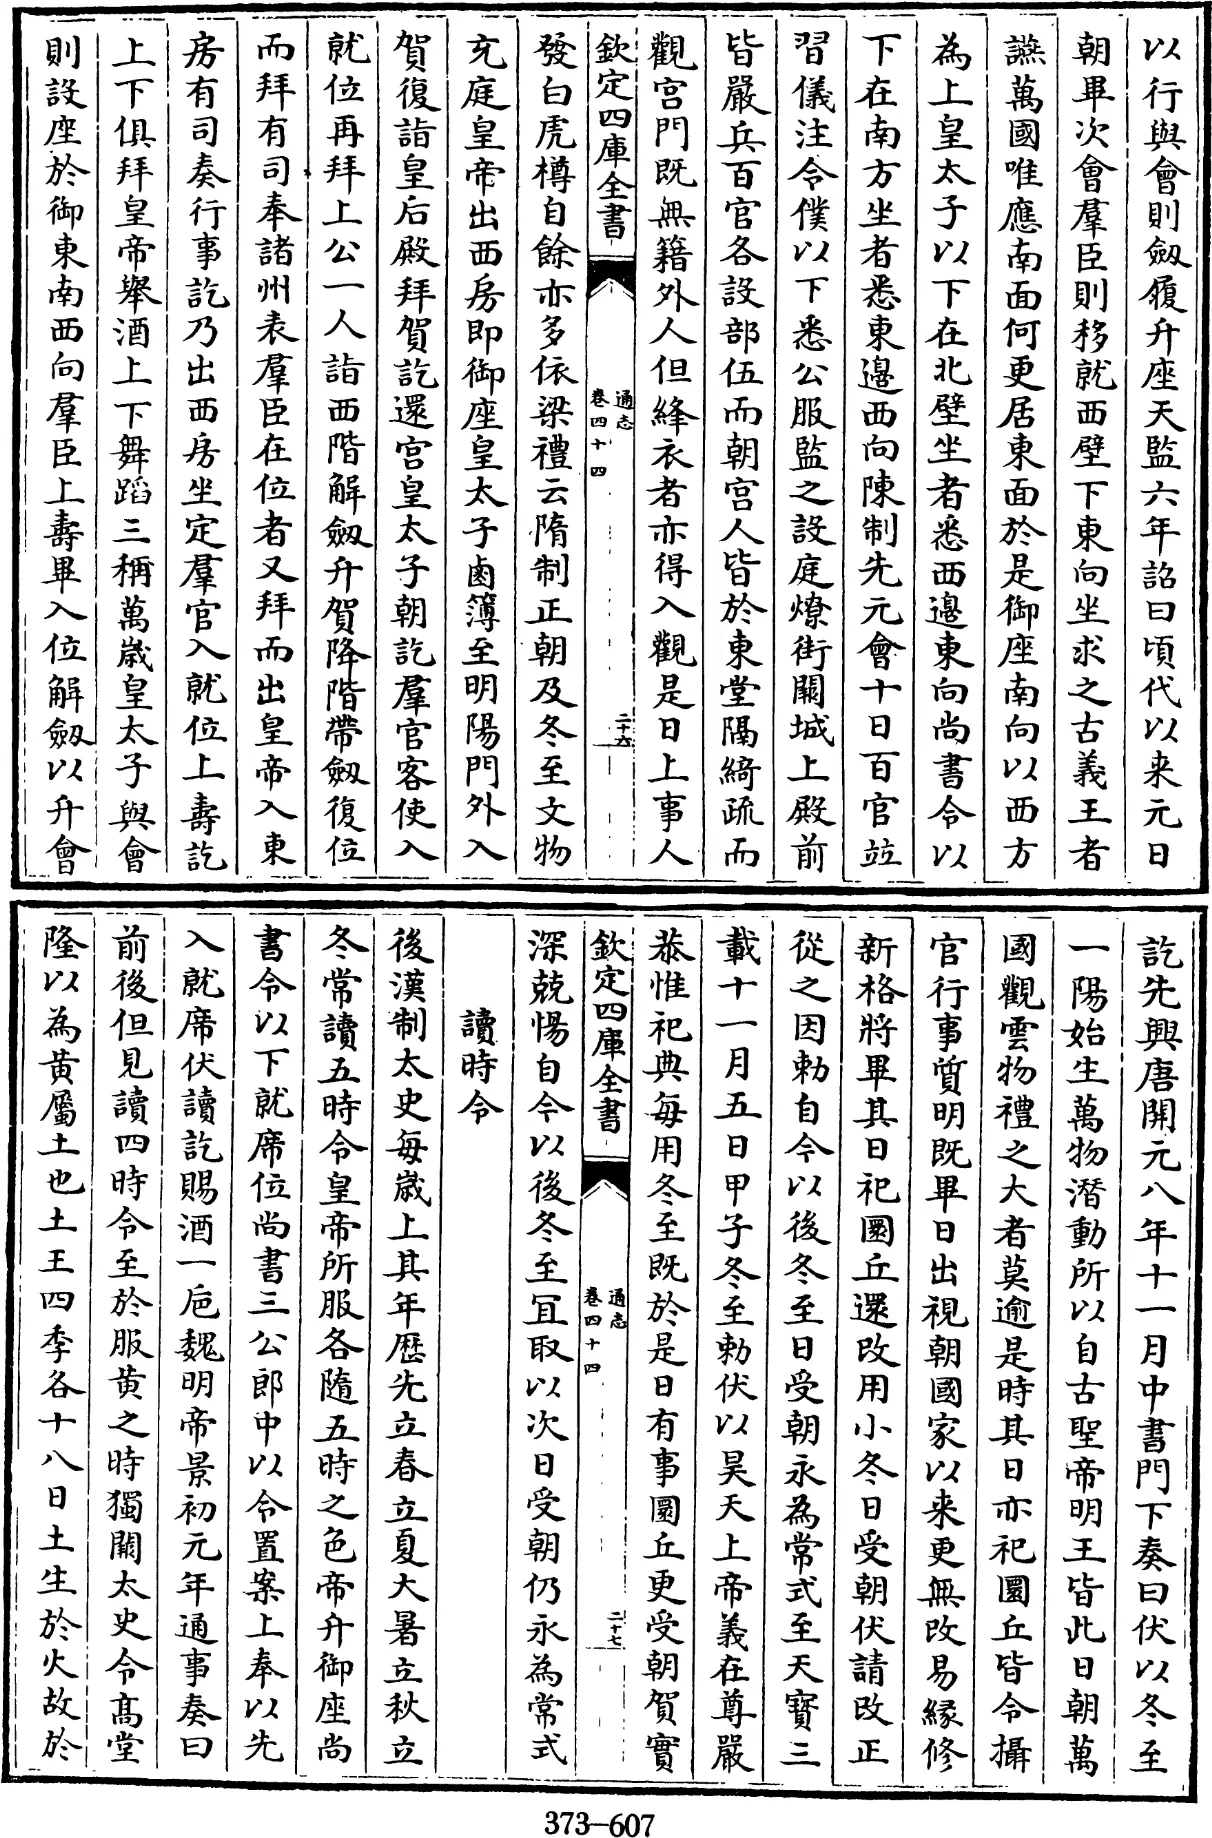 以行與會則劔履升座天監六年詔曰頃代以来元日
朝畢次會羣臣則移就西壁下東向坐求之古義王者
讌萬國唯應南面何更居東面於是御座南向以西方
為上皇太子以下在北壁坐者悉西邉東向尚書令以
下在南方坐者悉東邉西向陳制先元會十日百官竝
習儀注令僕以下悉公服監之設庭燎街闕城上殿前
皆嚴兵百官各設部伍而朝宮人皆於東堂隔綺疏而
觀宮門既無籍外人但絳衣者亦得入觀是日上事人
欽定四庫全書
通志
卷四十四
二十六
發白虎樽自餘亦多依梁禮云隋制正朝及冬至文物
充庭皇帝出西房即御座皇太子鹵簿至明陽門外入
賀復詣皇后殿拜賀訖還宮皇太子朝訖羣官客使入
就位再拜上公一人詣西階解劔升賀降階帶劔復位
而拜有司奉諸州表羣臣在位者又拜而出皇帝入東
房有司奏行事訖乃出西房坐定羣官入就位上壽訖
上下俱拜皇帝舉酒上下舞蹈三稱萬歳皇太子與會
則設座於御東南西向羣臣上壽畢入位解劔以升會
訖先興唐開元八年十一月中書門下奏曰伏以冬至
一陽始生萬物潛動所以自古聖帝明王皆此日朝萬
國觀雲物禮之大者莫逾是時其日亦祀圜丘皆令攝
官行事質明既畢日出視朝國家以来更無改易縁修
新格將畢其日祀圜丘還改用小冬日受朝伏請改正
從之因勅自今以後冬至日受朝永為常式至天寶三
載十一月五日甲子冬至勅伏以昊天上帝義在尊嚴
恭惟祀典每用冬至既於是日有事圜丘更受朝賀實
欽定四庫全書
通志
卷四十四
二十七
深兢惕自今以後冬至冝取以次日受朝仍永為常式
讀時令
後漢制太史每歳上其年歴先立春立夏大暑立秋立
冬常讀五時令皇帝所服各隨五時之色帝升御座尚
書令以下就席位尚書三公郎中以令置案上奉以先
入就席伏讀訖賜酒一巵魏明帝景初元年通事奏曰
前後但見讀四時令至於服黄之時獨闕太史令髙堂
隆以為黄屬土也土王四季各十八日土生於火故於
373—607